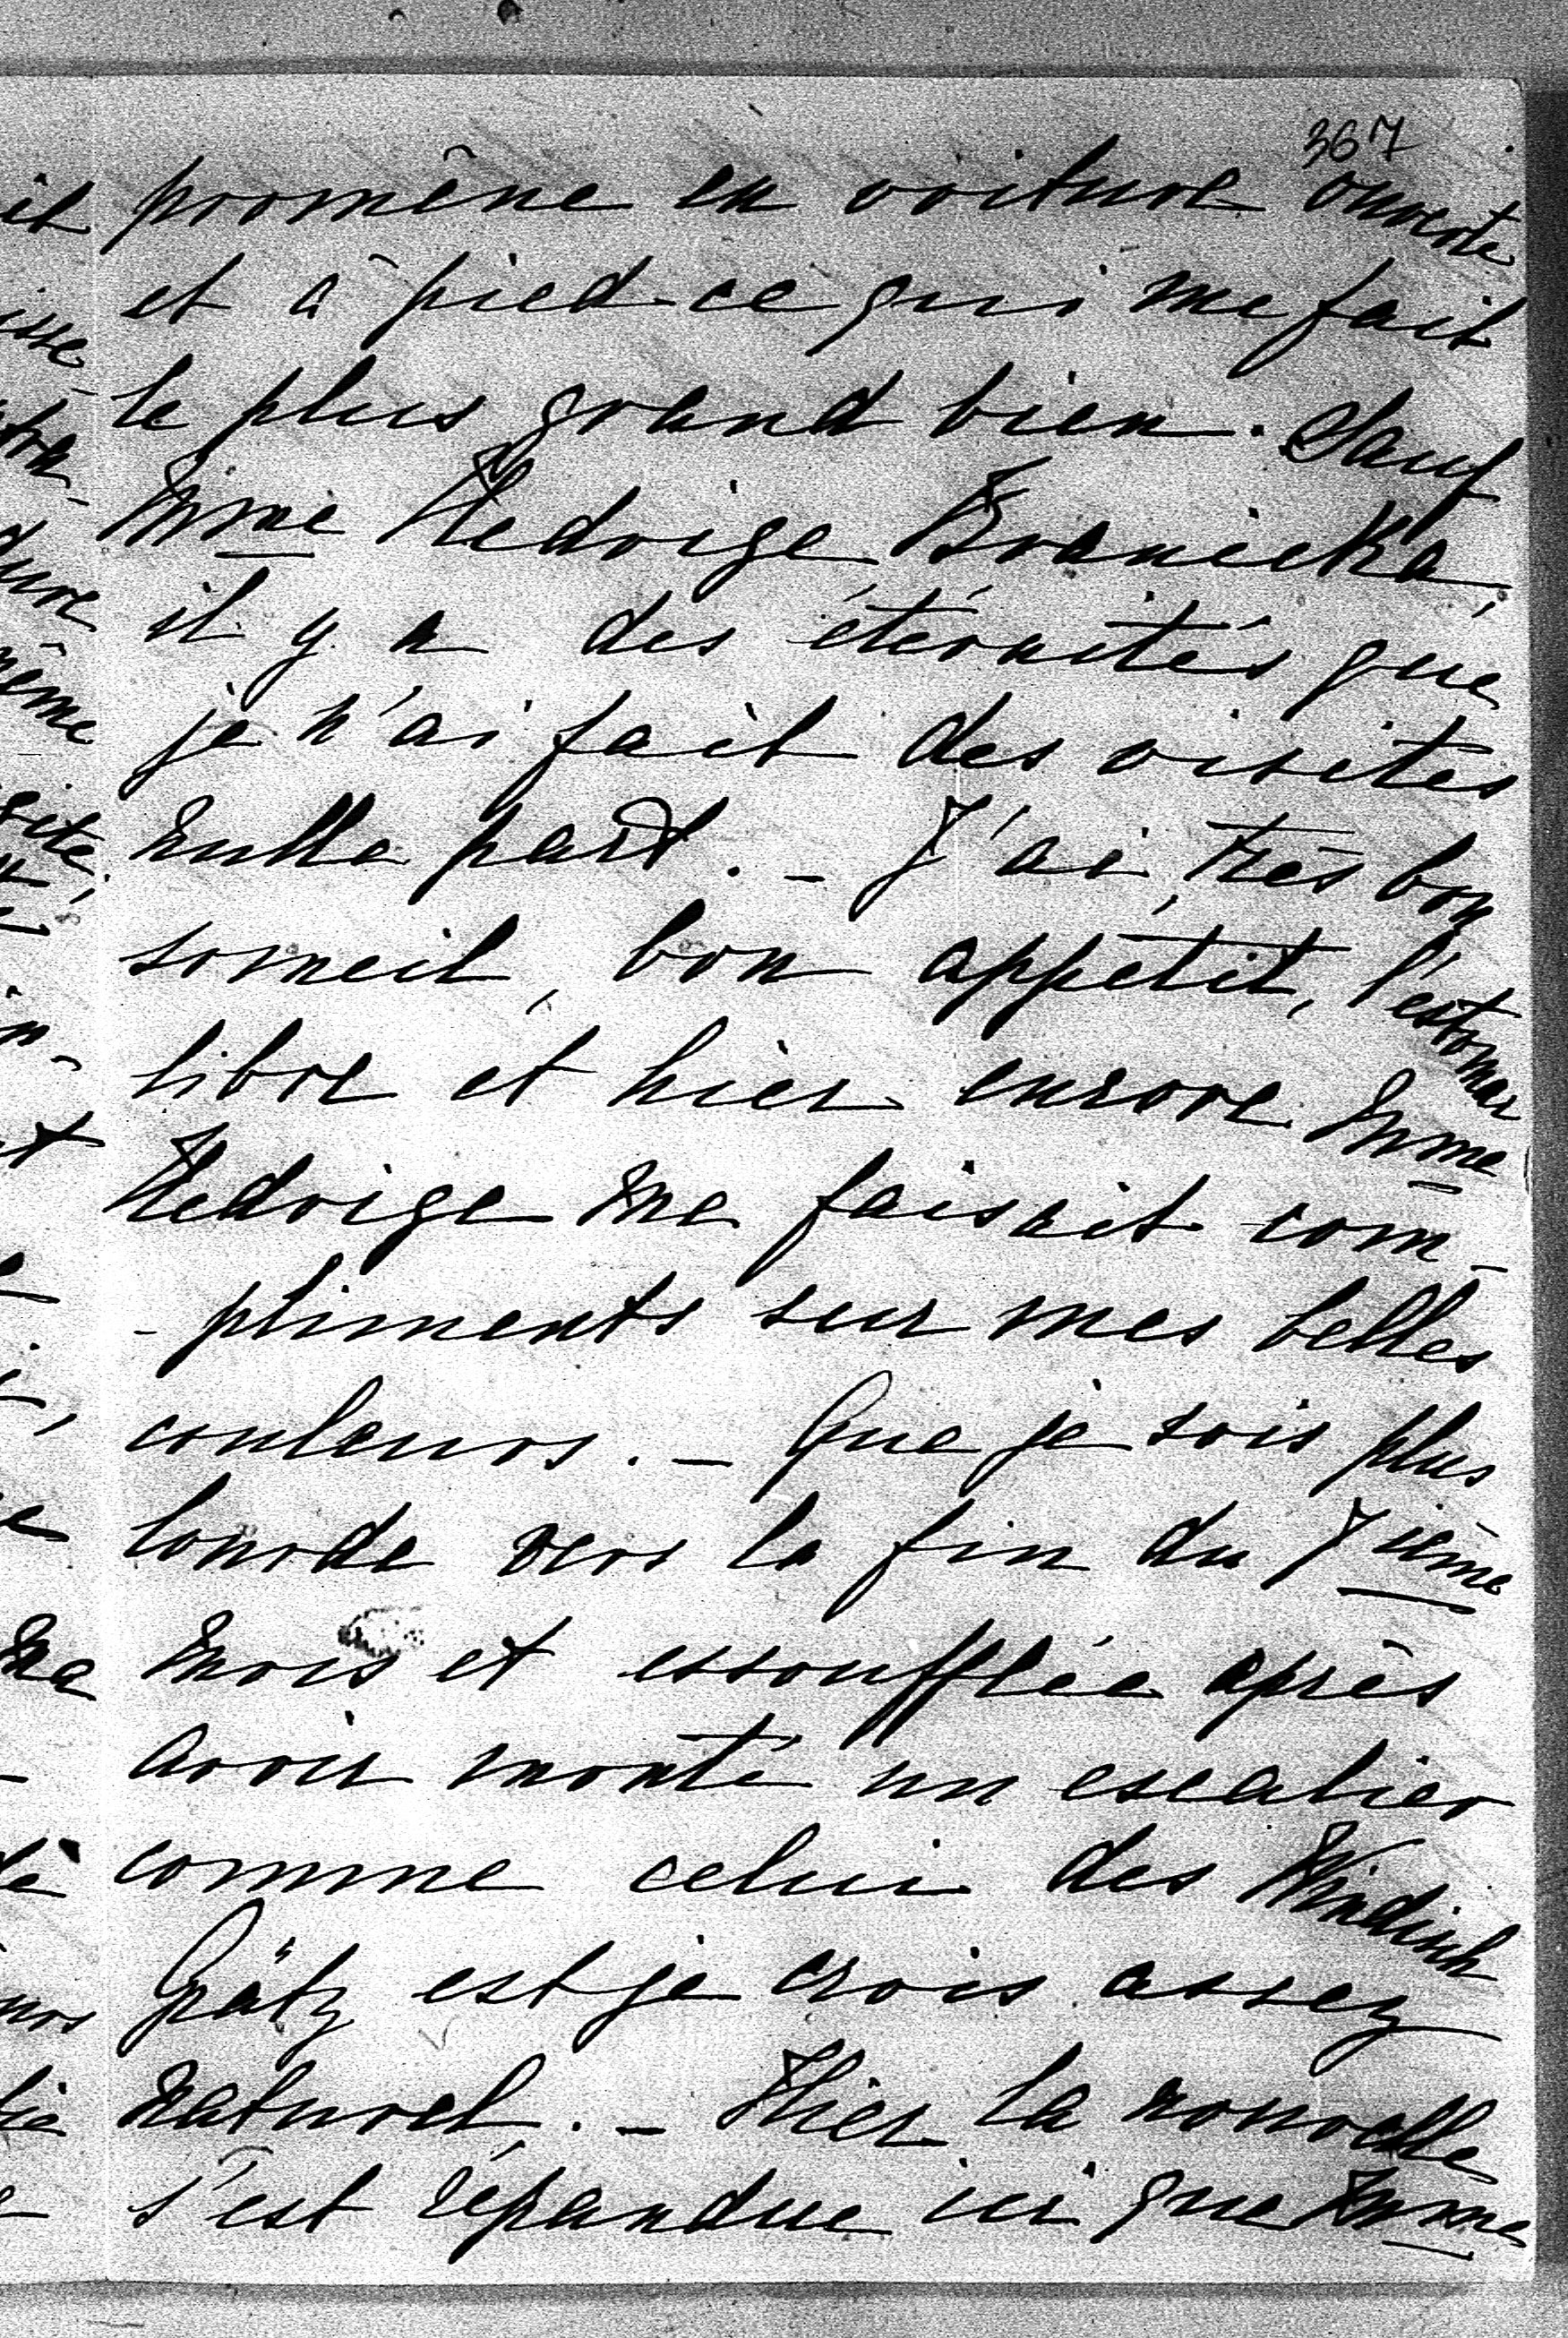 367
promêne en voiture ouverte
et à pied ce qui me fait
le plus grand bien. Sauf
Mme Hedvige Branicka,
il y a des éternités que
je n'ai fait des visites
nulle part. - J'ai très bon
someil, bon appétit, l'estomac
libre et hier encore Mme
Hedvige me faisait com-
-pliments sur mes belles
couleurs. - Que je sois plus
lourde vers la fin du 7ième
mois et essoufflée après
avoir monté un escalier
comme celui des Windisch
Grätz est je crois assez
naturel. - Hier la nouvelle
s'est répandue ici que Mme